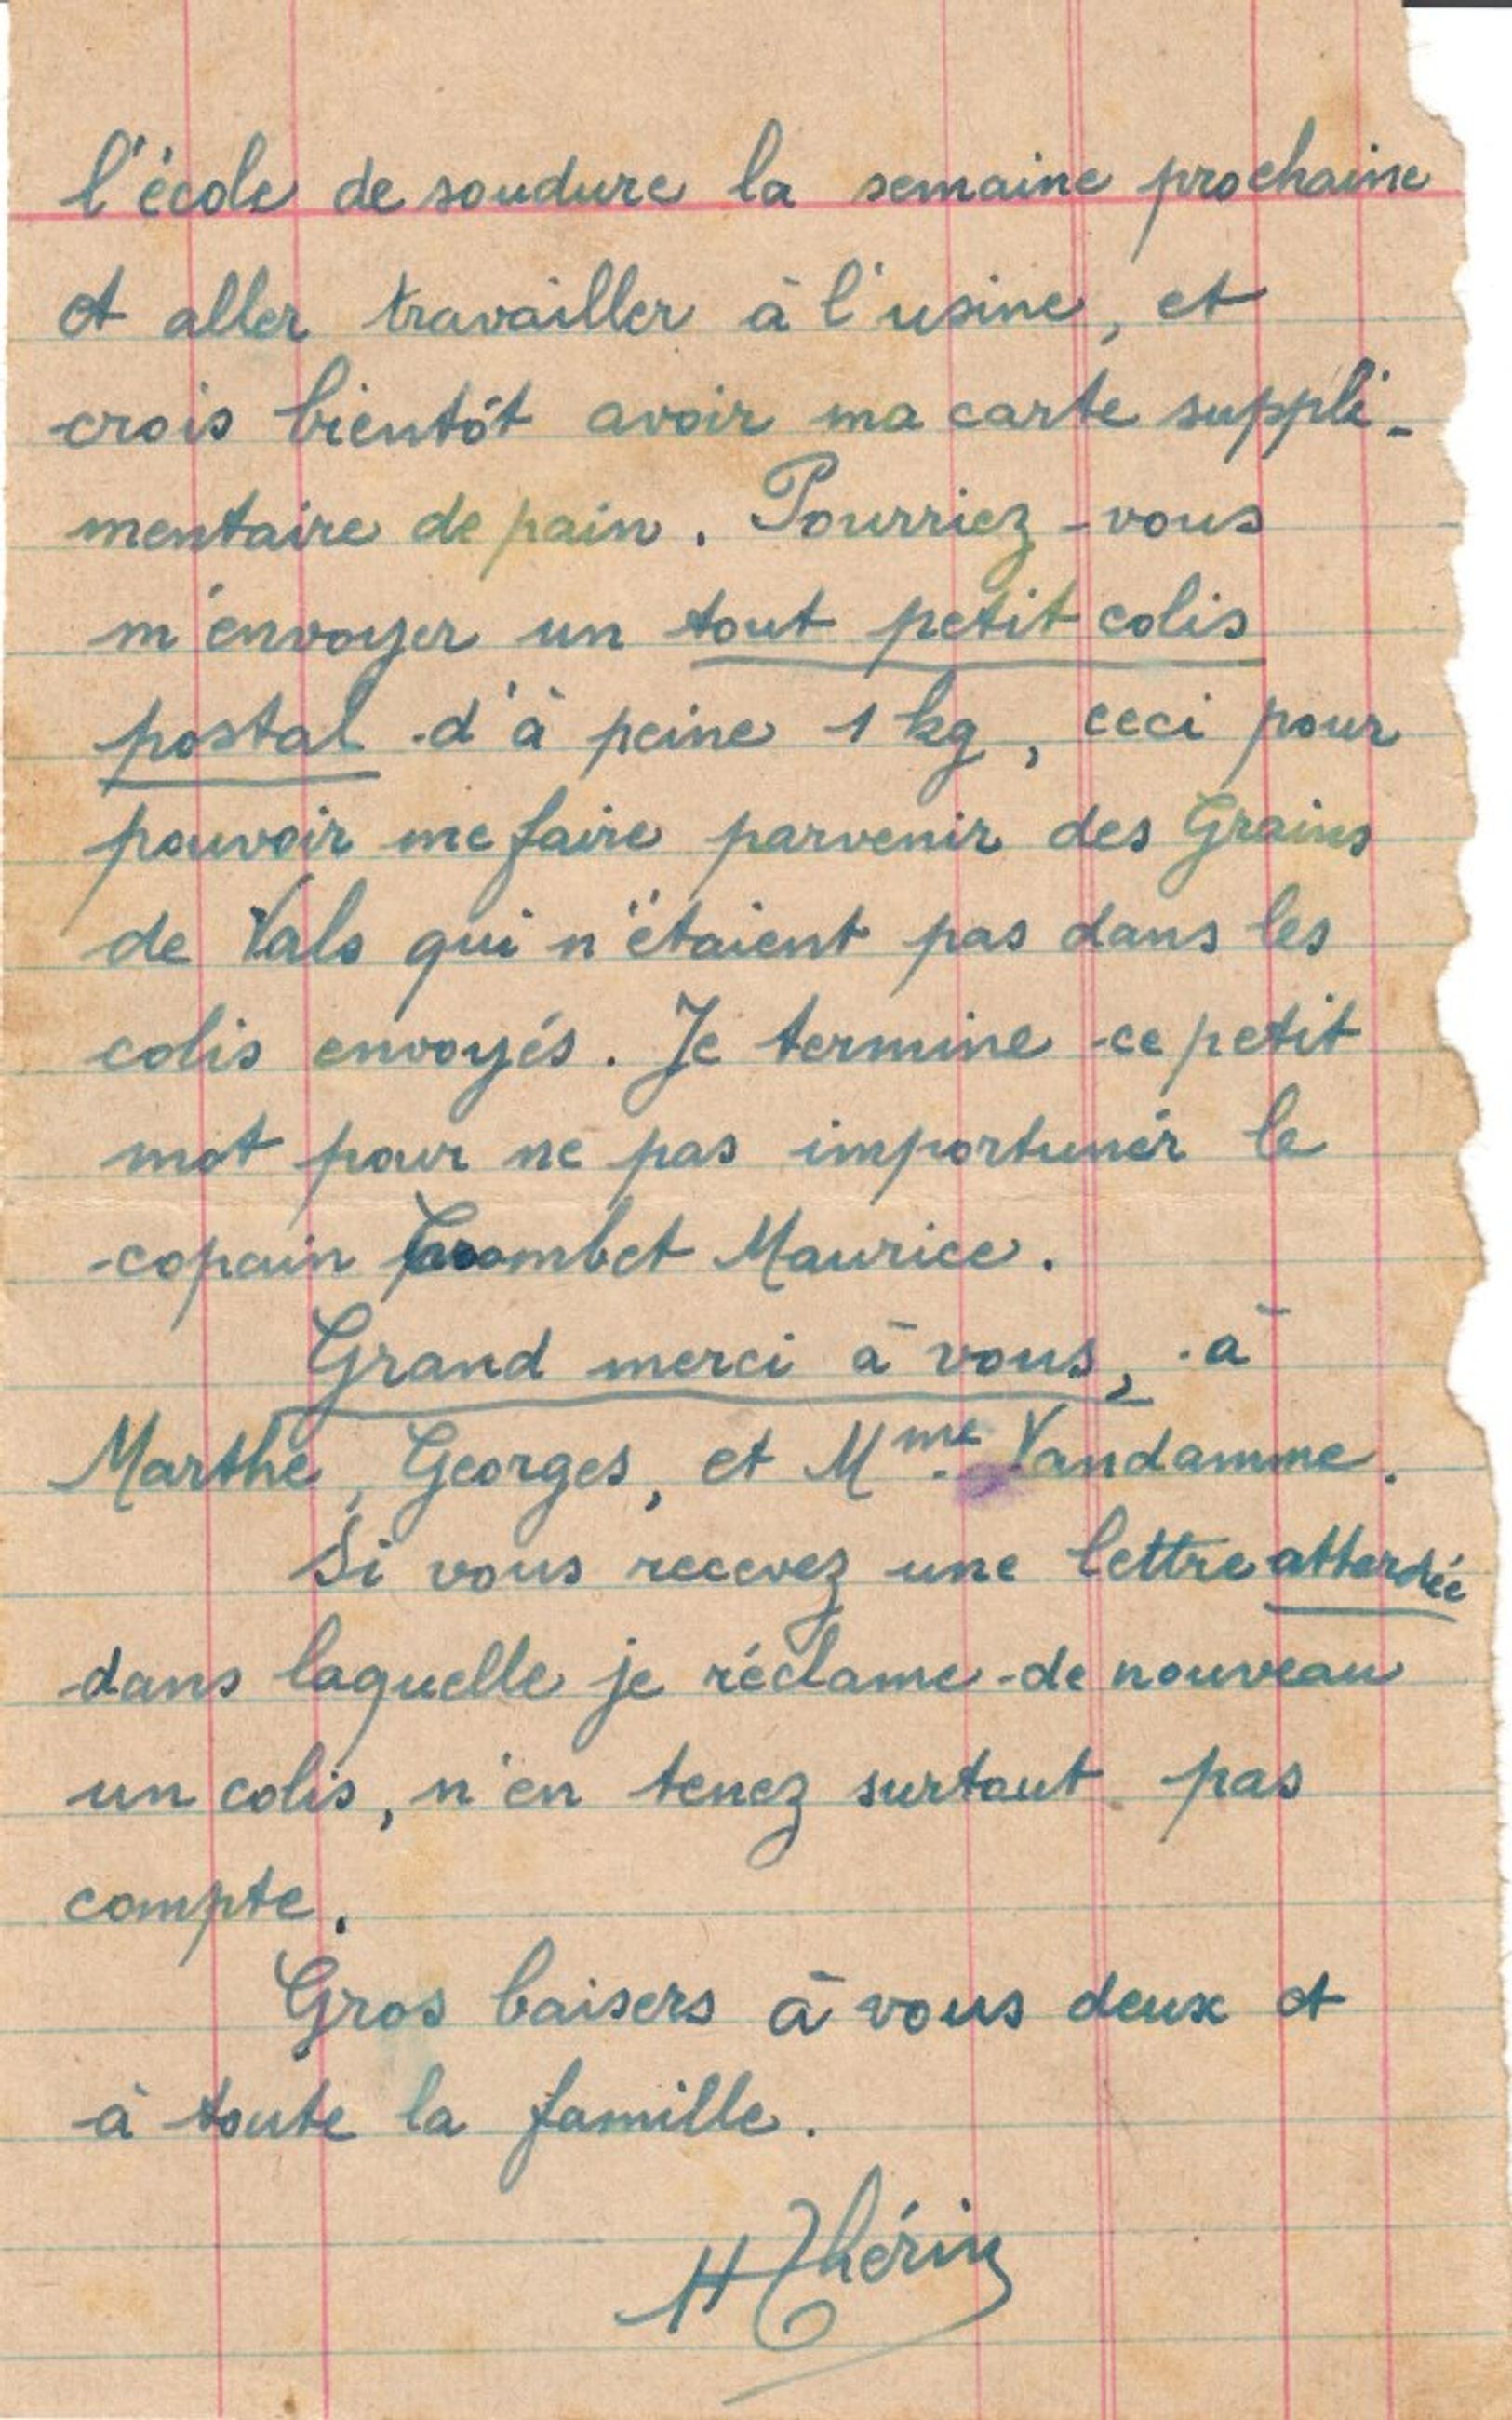 l'école de soudure la semaine prochaine
et aller travailler à l'usine, et
crois bientôt avoir ma carte supplé-
mentaire de pain. Pourriez-vous
m'envoyer un tout petit colis
postal d'à peine 1 kg, ceci pour
pouvoir me faire parvenir des Grains
de Vals qui n'étaient pas dans les
colis envoyés. Je termine ce petit
mot pour ne pas importuner le
copain Maurice.
Grand merci à vous, à
Marthe, Georges, et Mme Vandamme.
Si vous recevez une lettre attardée
dans laquelle je réclame de nouveau
un colis, n'en tenez surtout pas
compte.
Gros baisers à vous deux et
à toute la famille.
H Thérin